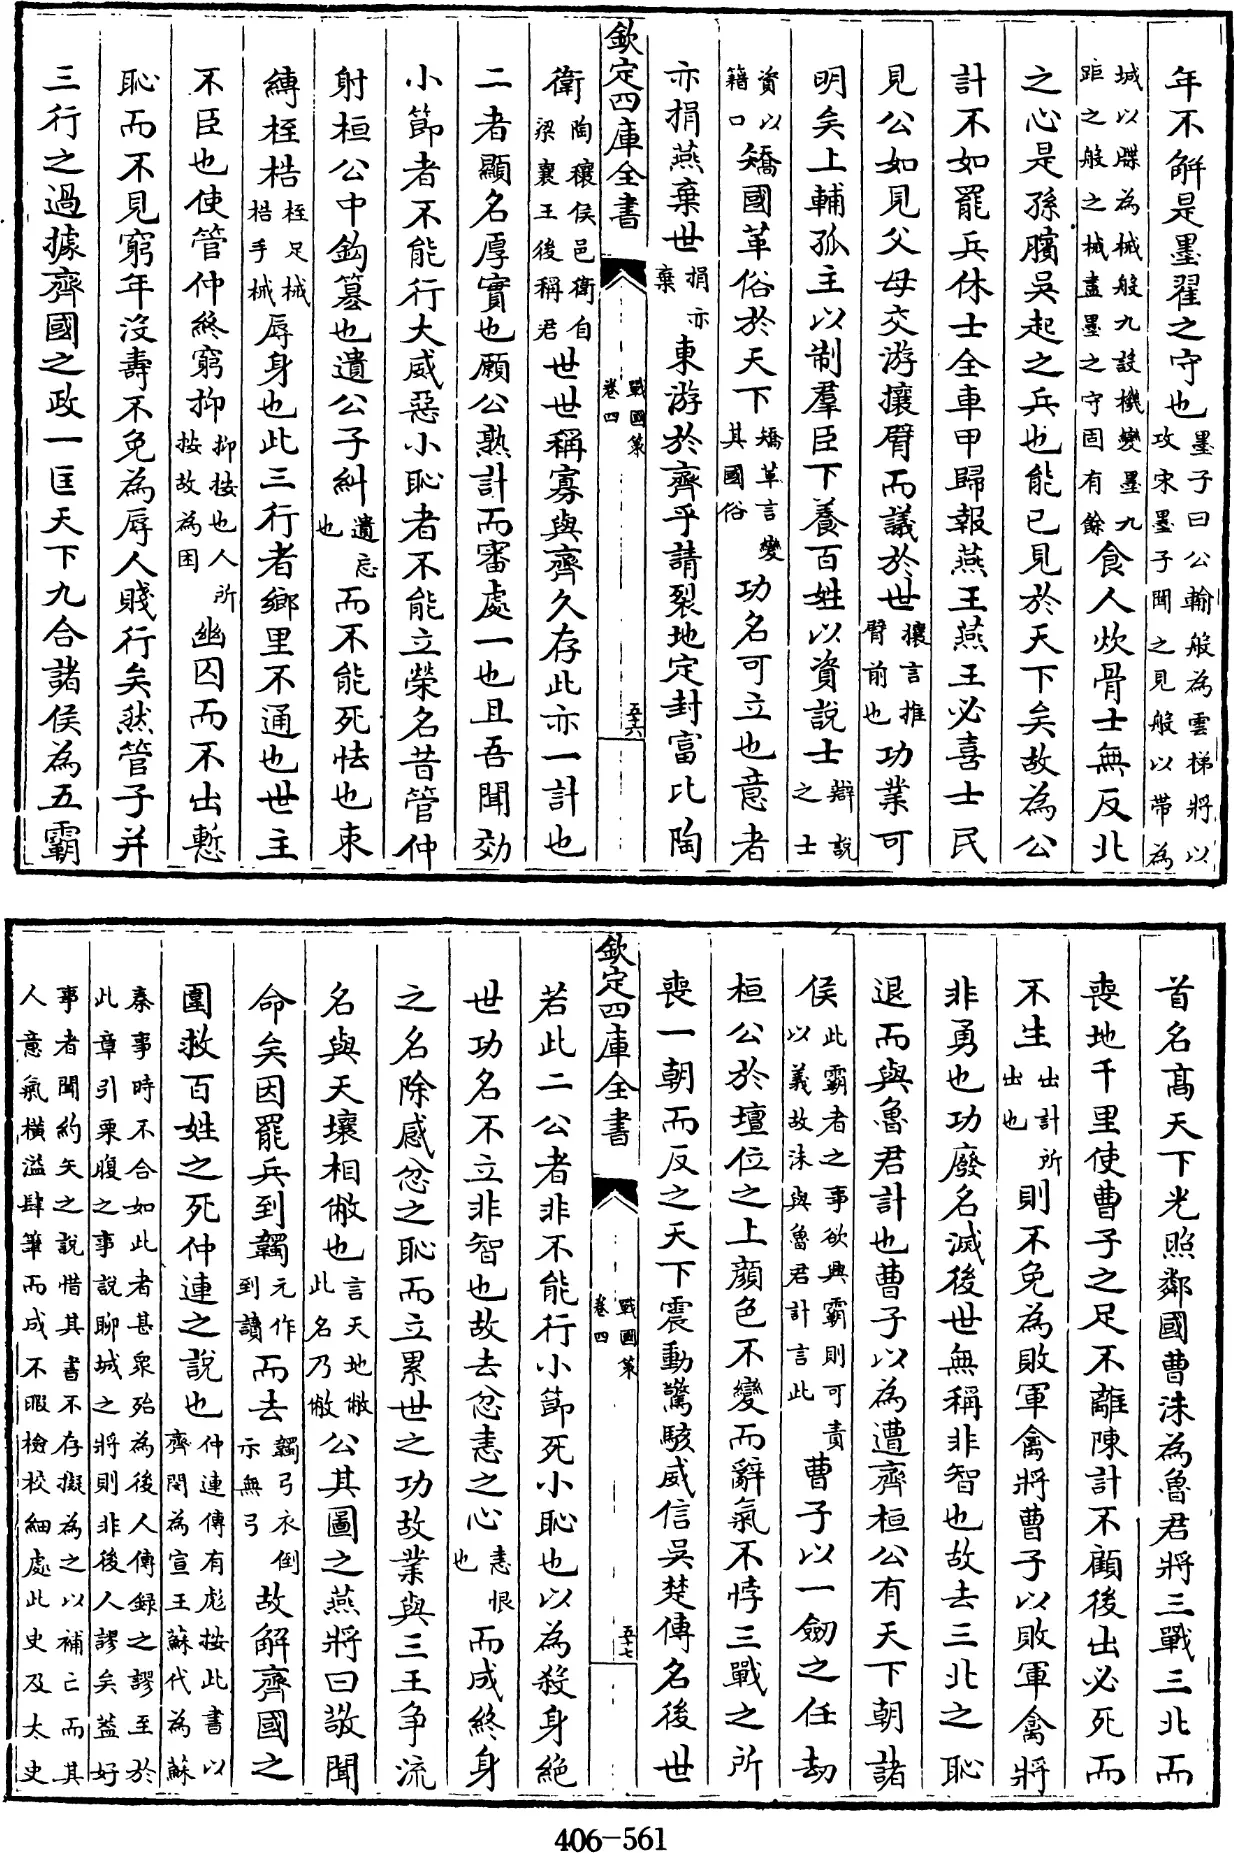 年不解是墨翟之守也墨子曰公輸般為雲梯將以攻宋墨子聞之見般以帶為
城以牒為械般九設機變墨九距之般之械盡墨之守固有餘食人炊骨士無反北
之心是孫臏吳起之兵也能已見於天下矣故為公
計不如罷兵休士全車甲歸報燕王燕王必喜士民
見公如見父母交游攘臂而議於世攘言推臂前也功業可
明矣上輔孤主以制羣臣下養百姓以資說士辯說之士
資以籍口矯國革俗於天下矯革言變其國俗功名可立也意者
亦捐燕棄世捐亦棄東游於齊乎請裂地定封富比陶
欽定四庫全書 戰國策卷四 五六
衛陶穰侯邑衛自梁襄王後稱君世世稱寡與齊久存此亦一計也
二者顯名厚實也願公熟計而審處一也且吾聞効
小節者不能行大威惡小恥者不能立榮名昔管仲
射桓公中鈎篡也遺公子糾遺忘也而不能死怯也束
縛桎梏桎足械梏手械辱身也此三行者鄉里不通也世主
不臣也使管仲終窮抑抑按也人所按故為困幽囚而不出慙
恥而不見窮年沒壽不免為辱人賤行矣然管子并
三行之過據齊國之政一匡天下九合諸侯為五霸
首名高天下光照鄰國曹沫為魯君將三戰三北而
喪地千里使曹子之足不離陳計不顧後出必死而
不生出計所出也則不免為敗軍禽將曹子以敗軍禽將
非勇也功廢名滅後世無稱非智也故去三北之恥
退而與魯君計也曹子以為遭齊桓公有天下朝諸
侯此霸者之事欲與霸則可責以義故沫與魯君計言此曹子以一劒之任劫
桓公於壇位之上顔色不變而辭氣不悖三戰之所
喪一朝而反之天下震動驚駭威信吳楚傳名後世
欽定四庫全書 戰國策卷四 五七
若此二公者非不能行小節死小恥也以為殺身絕
世功名不立非智也故去忿恚之心恚恨也而成終身
之名除感忿之恥而立累世之功故業與三王争流
名與天壤相敝也言天地敝此名乃敝公其圖之燕將曰敬聞
命矣因罷兵到韣元作到讀而去韣弓衣倒示無弓故解齊國之
圍救百姓之死仲連之說也仲連傳有彪按此書以齊閔為宣王蘇代為蘇
秦事時不合如此者甚衆殆為後人傳録之謬至於此章引栗腹之事說聊城之將則非後人謬矣蓋好
事者聞約矢之說惜其書不存擬為之以補亡而其人意氣横溢肆筆而成不暇檢校細處此史及太史
406-561